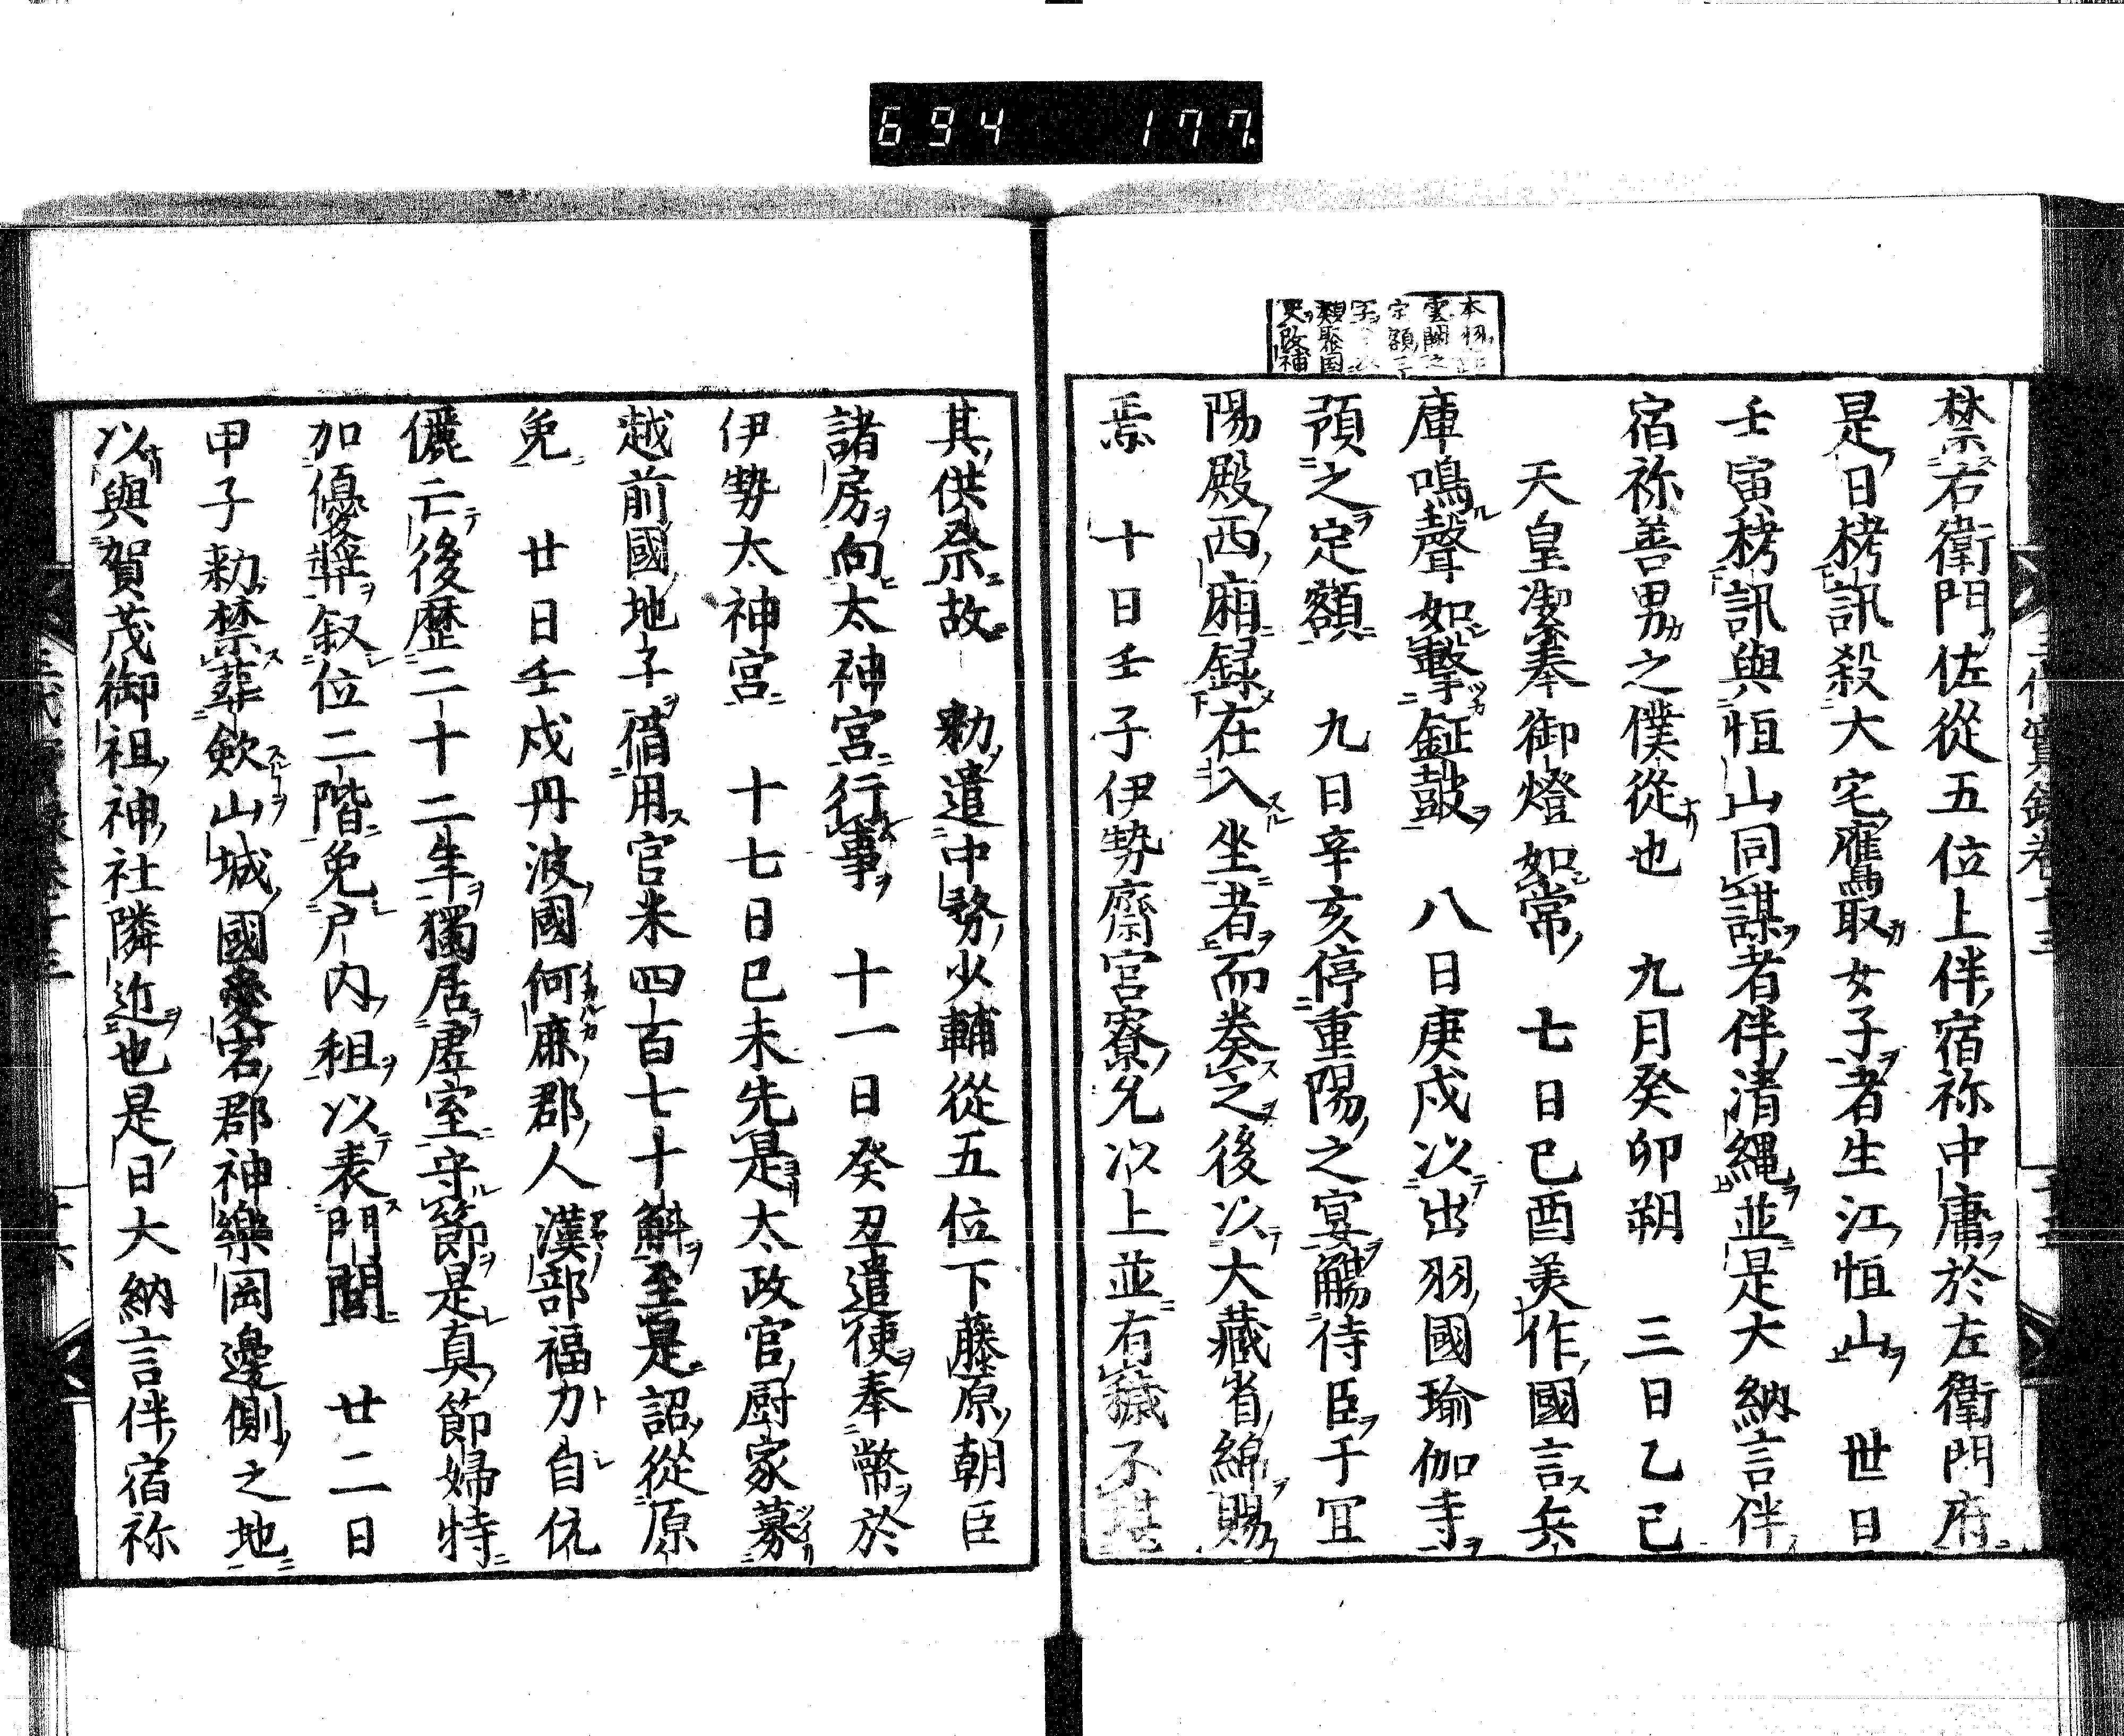 694 177.
類聚国
史改補
禁右衛門佐從五位上伴宿祢中庸於左衛門府
是日栲訊殺大宅鷹取女子者生江恒山 世日
壬寅栲訊與恒山同謀者伴清縄並是大納言伴
宿祢善男之僕從也 九月癸卯朔 三日乙巳
天皇潔奉御燈如常 七日己酉美作國言兵
庫鳴聲如擊鉦鼓 八日庚戌以出羽國瑜伽寺
預之定額 九日辛亥停重陽之宴觴侍臣于冝
陽殿西廂録在入坐者而奏之後以大藏省綿賜
焉 十日壬子伊勢齋宮寮允以上並有穢不堪
其供祭故 勅遣中務少輔從五位下藤原朝臣
諸房向太神宮行事 十一日癸丑遣使奉幣於
伊勢太神宮 十七日己未先是太政官厨家募
越前國地子借用官米四百七十斛至是詔從原
免 廿日壬戌丹波國何麻郡人漢部福力自伉
儷亡後歷二十二年獨居虚室守節是真節婦特
加優奬叙位二階免户内租以表門閭 廿二日
甲子勅禁葬歛山城國愛宕郡神樂岡邊側之地
以與賀茂御祖神社隣近也是日大納言伴宿祢